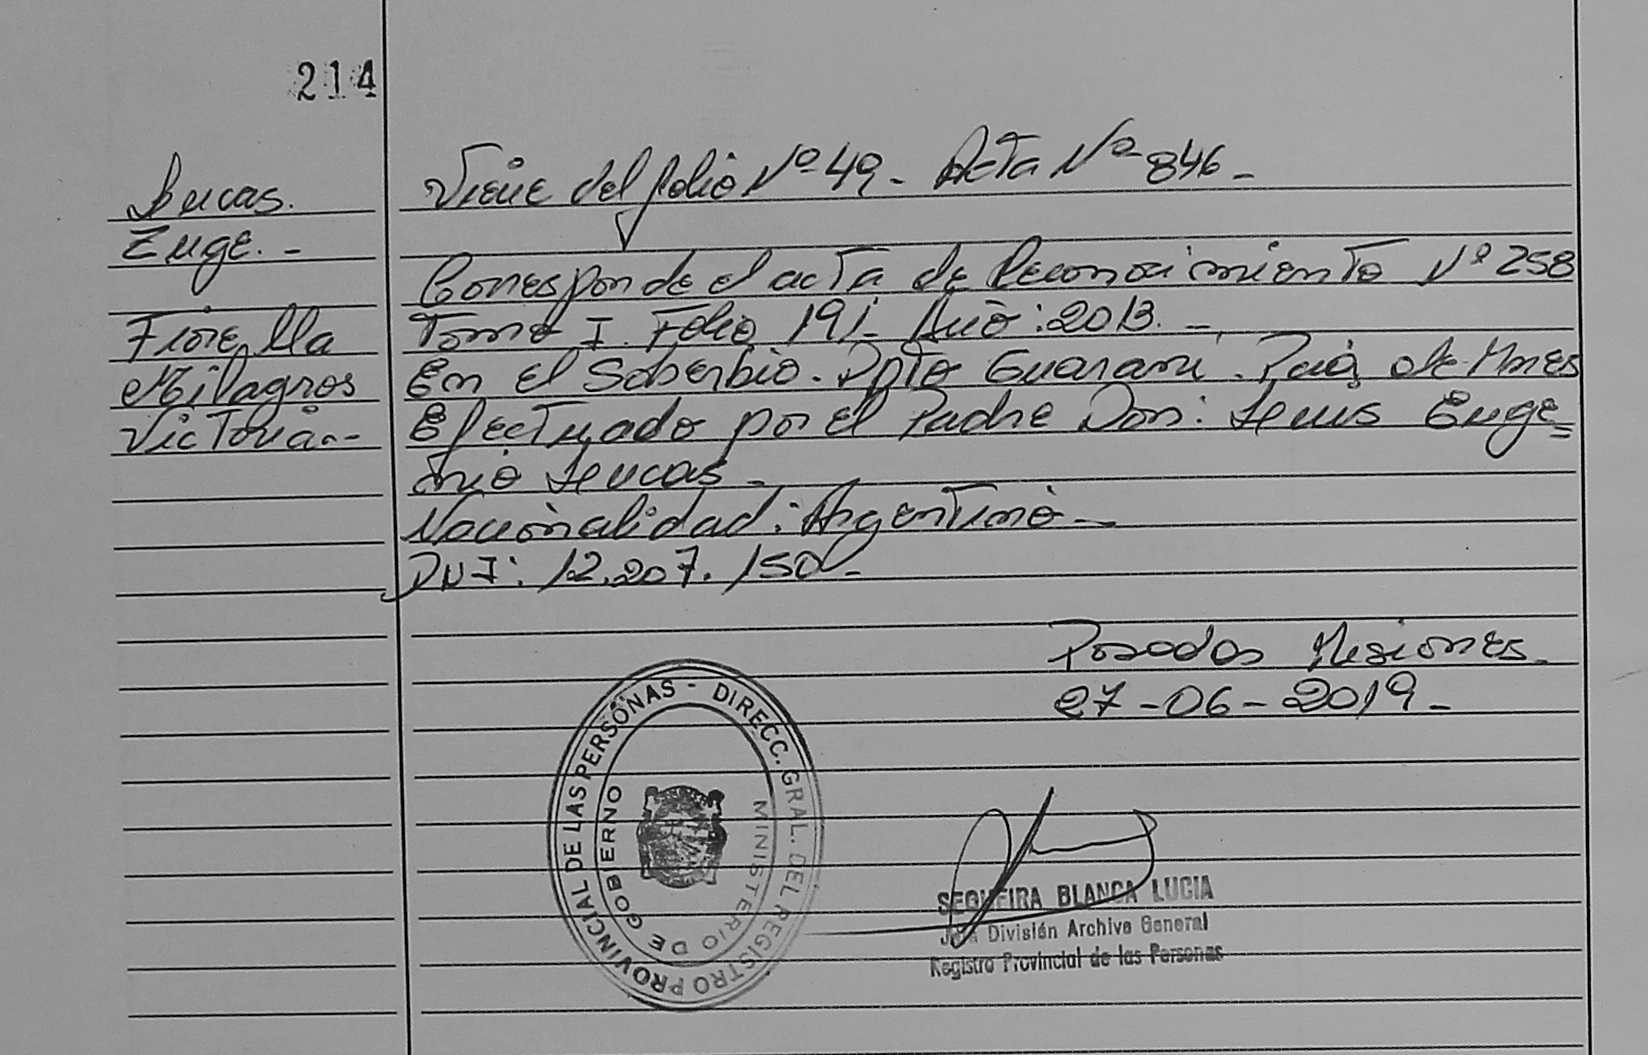 214
Lucas.
Zuge.-
Fiorella
Milagros
Victoria.-
Viene del folio Nº 49.- Acta Nº 846-
Corresponde el acta de Reconocimiento Nº 258
Tomo I. Folio 191- Año: 2013.-
En el Soberbio. Dpto Guarani. Pcia, de Mnes
Efectuado por el Padre Don: Luis Euge=
nio Lucas-
Nacionalidad: Argentino-
DNI: 12.207.150-
Posadas Misiones.
27-06-2019-
DIRECC. GRAL. DEL REGISTRO PROVINCIAL DE LAS PERSONAS -
MINISTERIO DE GOBIERNO
SEQUEIRA BLANCA LUCIA
Jefa División Archivo General
Registro Provincial de las Personas